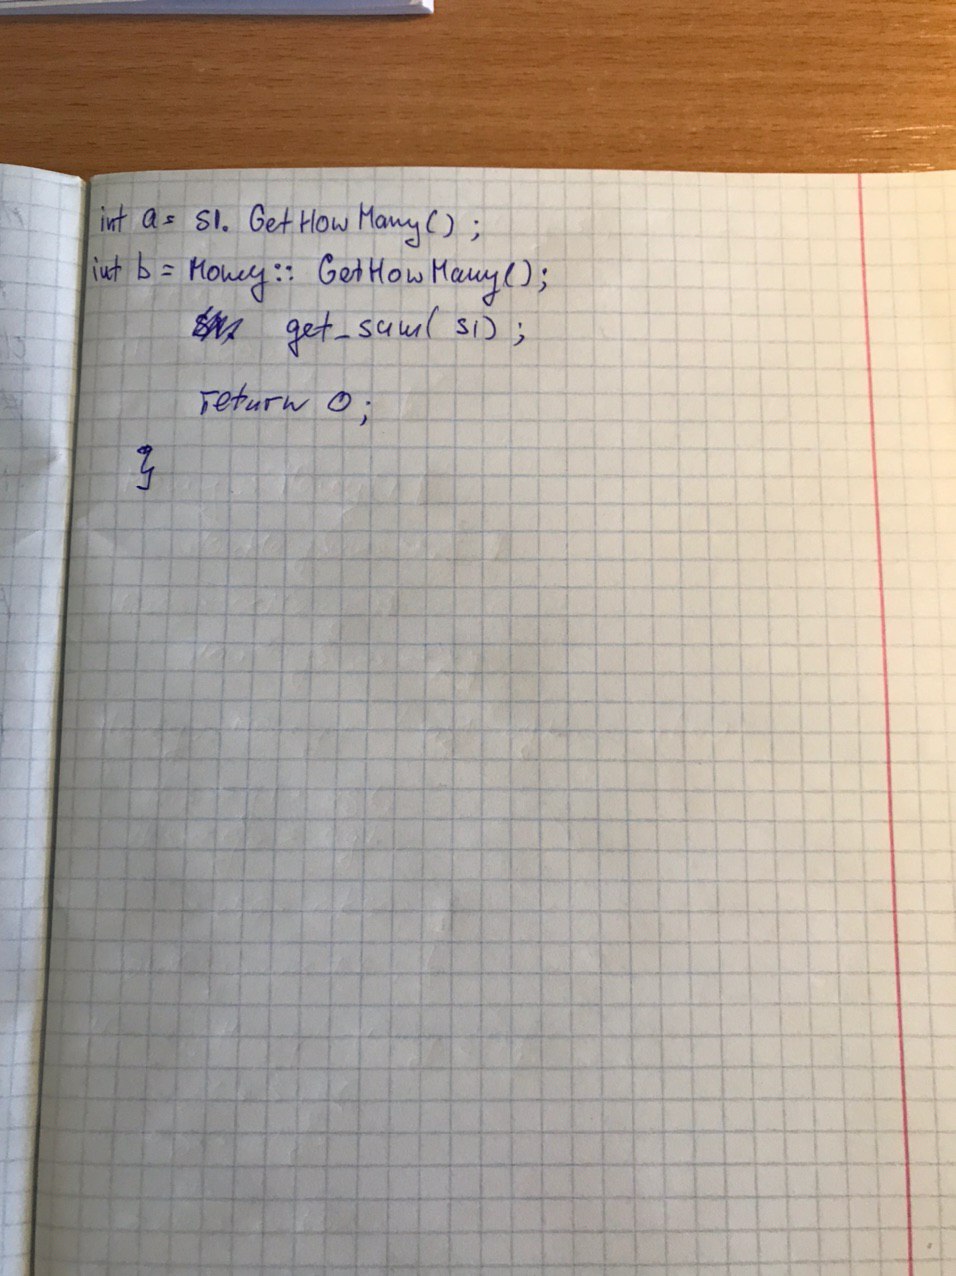 int a = s1. GetHowMany() ;
int b = Money:: GetHowMany();
get_sum( s1) ;
return 0;
}